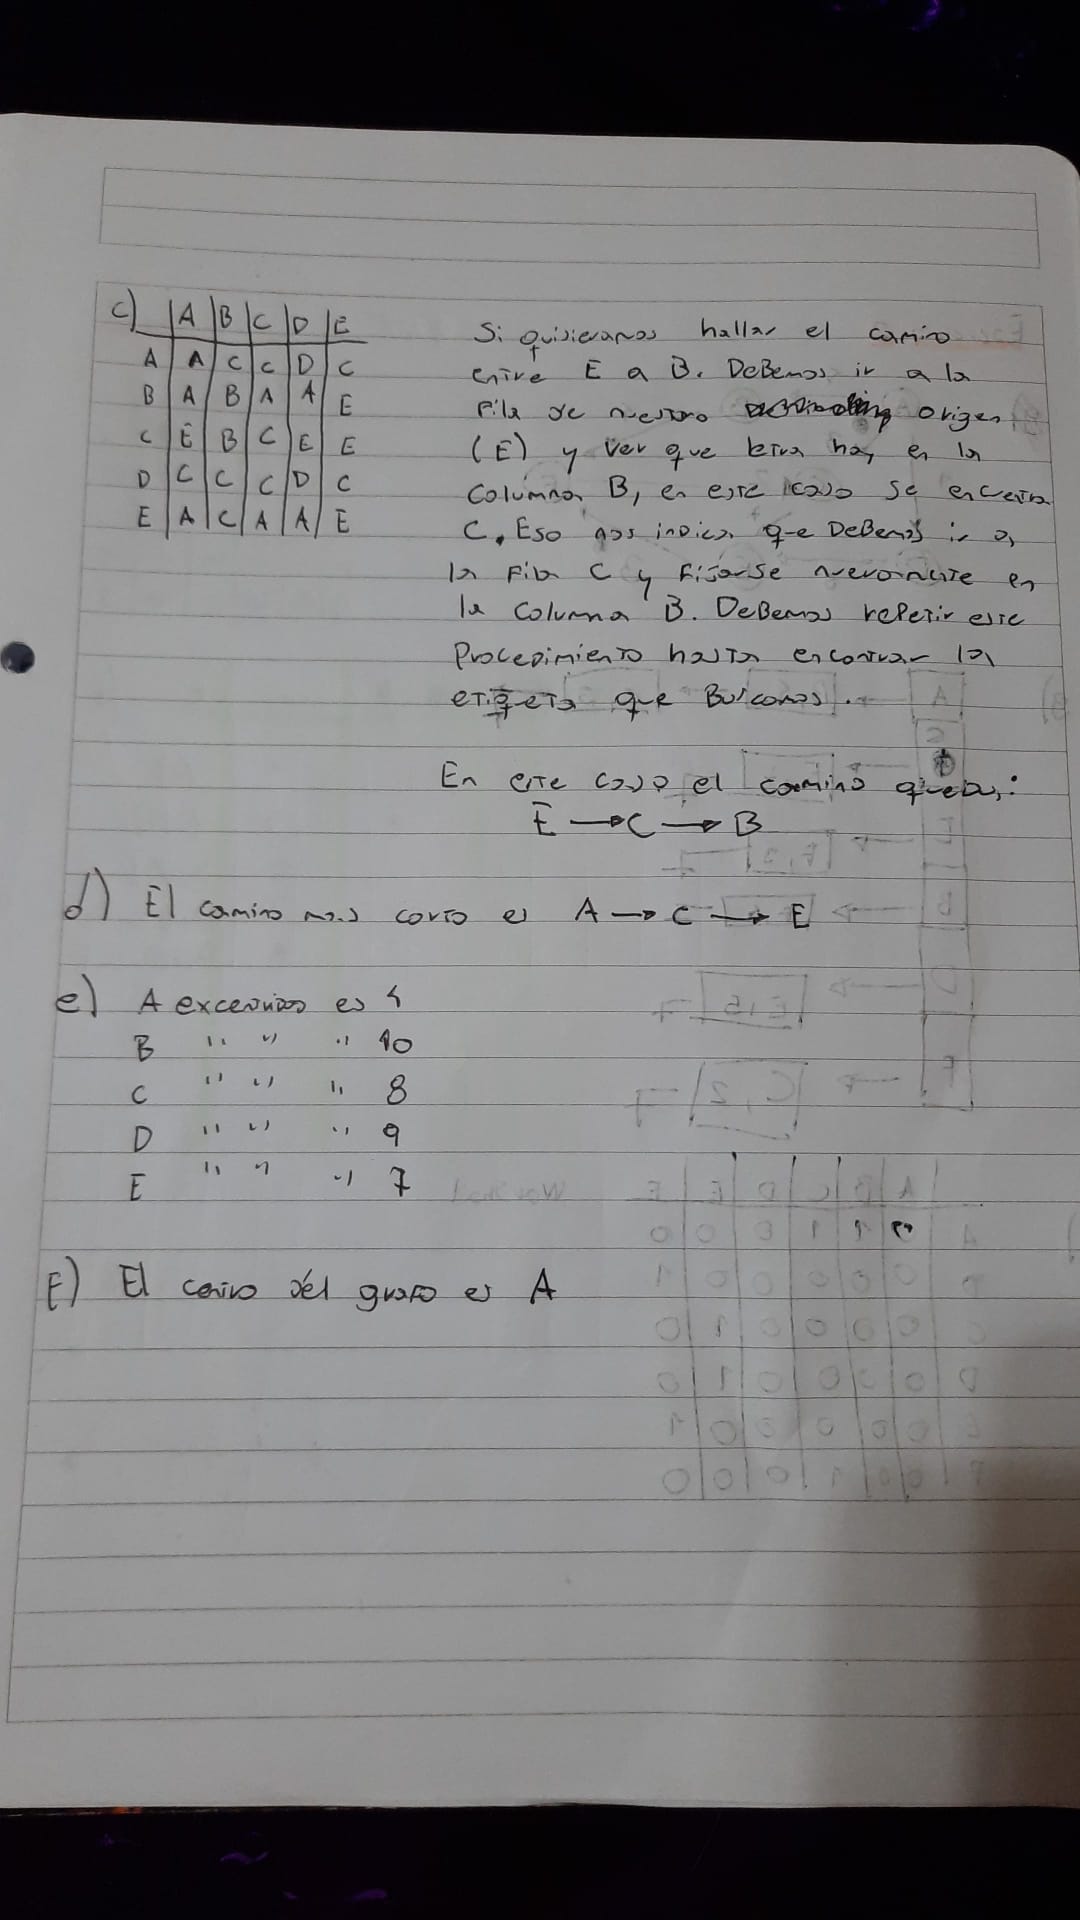 c) | A | B | C | D | E
A | A | C | C | D | C
B | A | B | A | A | E
C | E | B | C | E | E
D | C | C | C | D | C
E | A | C | A | A | E
Si quisieramos hallar el camino
entre E a B. DeBemos ir a la
Fila de nuestro origen
(E) y ver que letra hay en la
Columna B, en este caso se encentra
C. Eso nos indica que DeBemos ir a
la Fila C y Fijarse nuevamente en
la Columna B. DeBemos repetir este
Procedimiento hasta encontrar la
etiqueta que Buscamos.
En este caso el camino queda:
E → C → B
d) El camino mas corto es A → C → E
e) A es 4
B " " " 10
C " " " 8
D " " " 9
E " " " 7
F) El centro del grafo es A